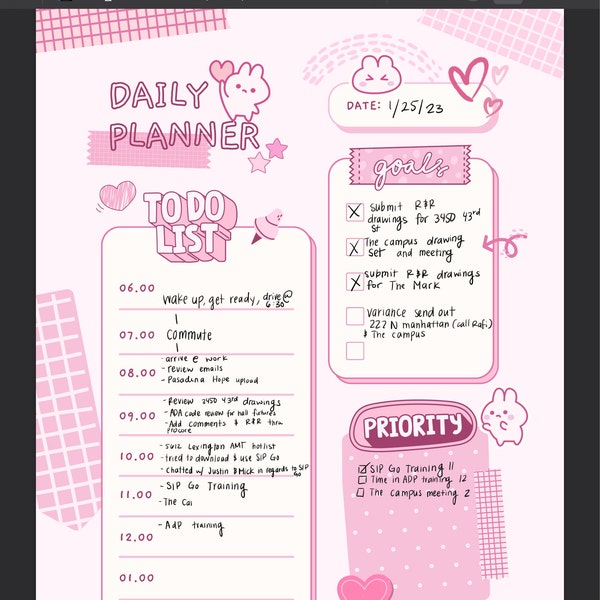 DAILY
PLANNER
DATE: 1/25/23
goals
Submit R&R
drawings for 3450 43rd
St
The campus drawing
Set and meeting
submit R&R drawings
for The Mark
Variance send out
222 N manhattan (call Rafi)
& The campus
TO DO
LIST
06.00
Wake up, get ready, drive @
6:30
07.00
Commute
- arrive @ work
08.00
- review emails
- Pasadena Hope upload
- Review 3450 43rd drawings
09.00
- ADA code review for hall fixtures
- Add comments & R&R thru
procore
10.00
- 5612 Lexington AMT hotlist
- tried to download & use SIP Go
- chatted w/ Justin & Mick in regards to SIP
Go
11.00
- SIP Go Training
- The Cai
- ADP training
12.00
01.00
PRIORITY
SIP Go Training 11
Time in ADP training 12
The campus meeting 2